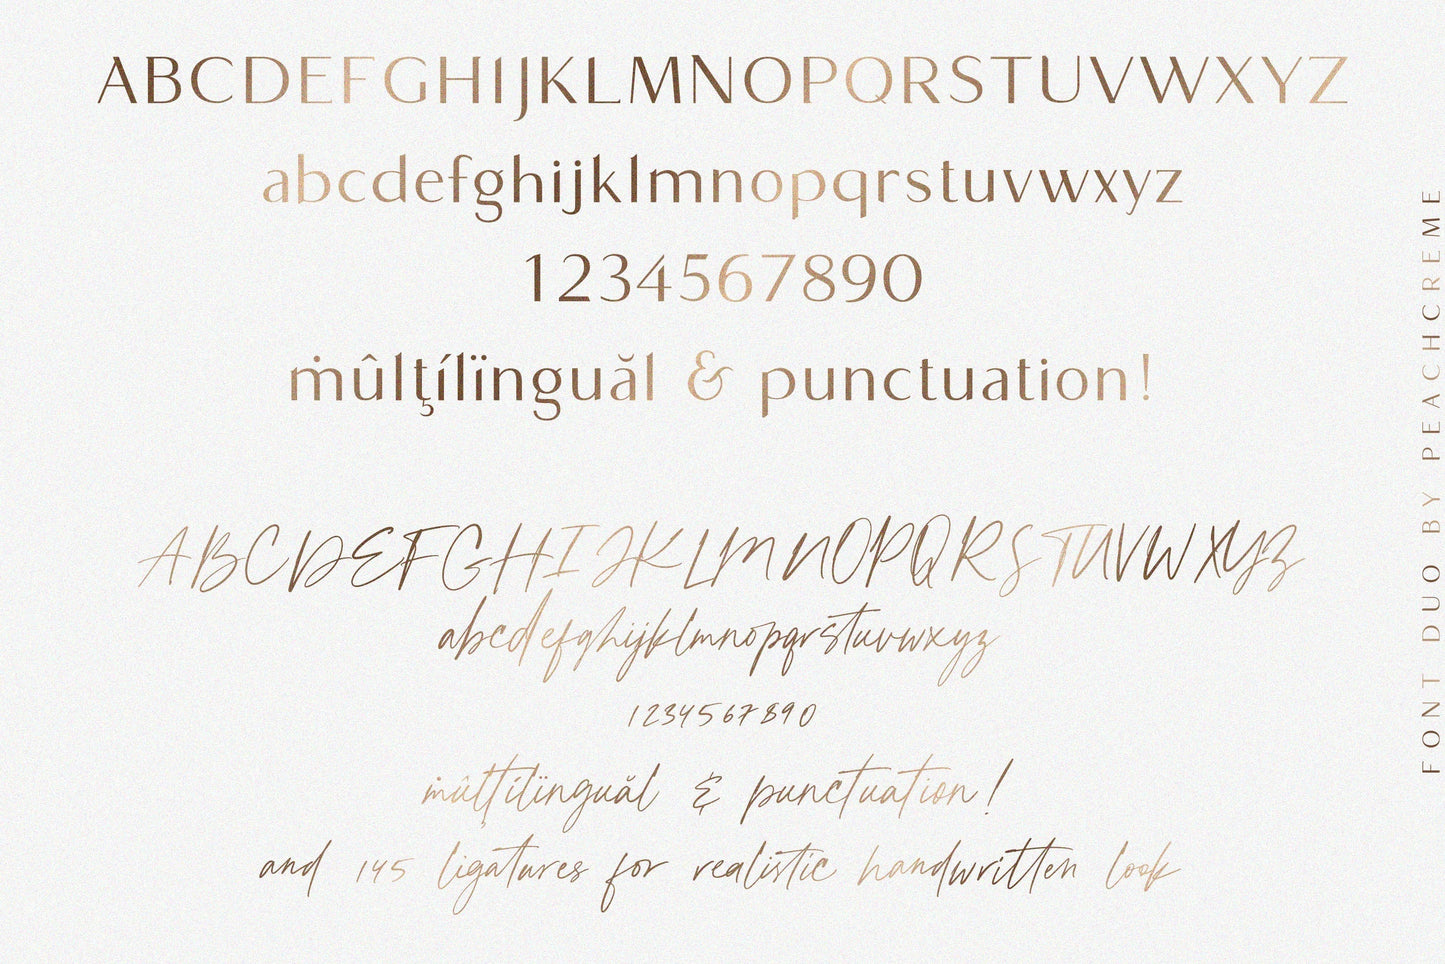 ABCDEFGHIJKLMNOPQRSTUVWXYZ
abcdefghijklmnopqrstuvwxyz
1234567890
ṁûlţílïnguăl & punctuation!
ABCDEFGHIJKLMNOPQRSTUVWXYZ
abcdefghijklmnopqrstuvwxyz
1234567890
ṁûlţílïnguăl & punctuation!
and 145 ligatures for realistic handwritten look
FONT DUO BY PEACHCREME